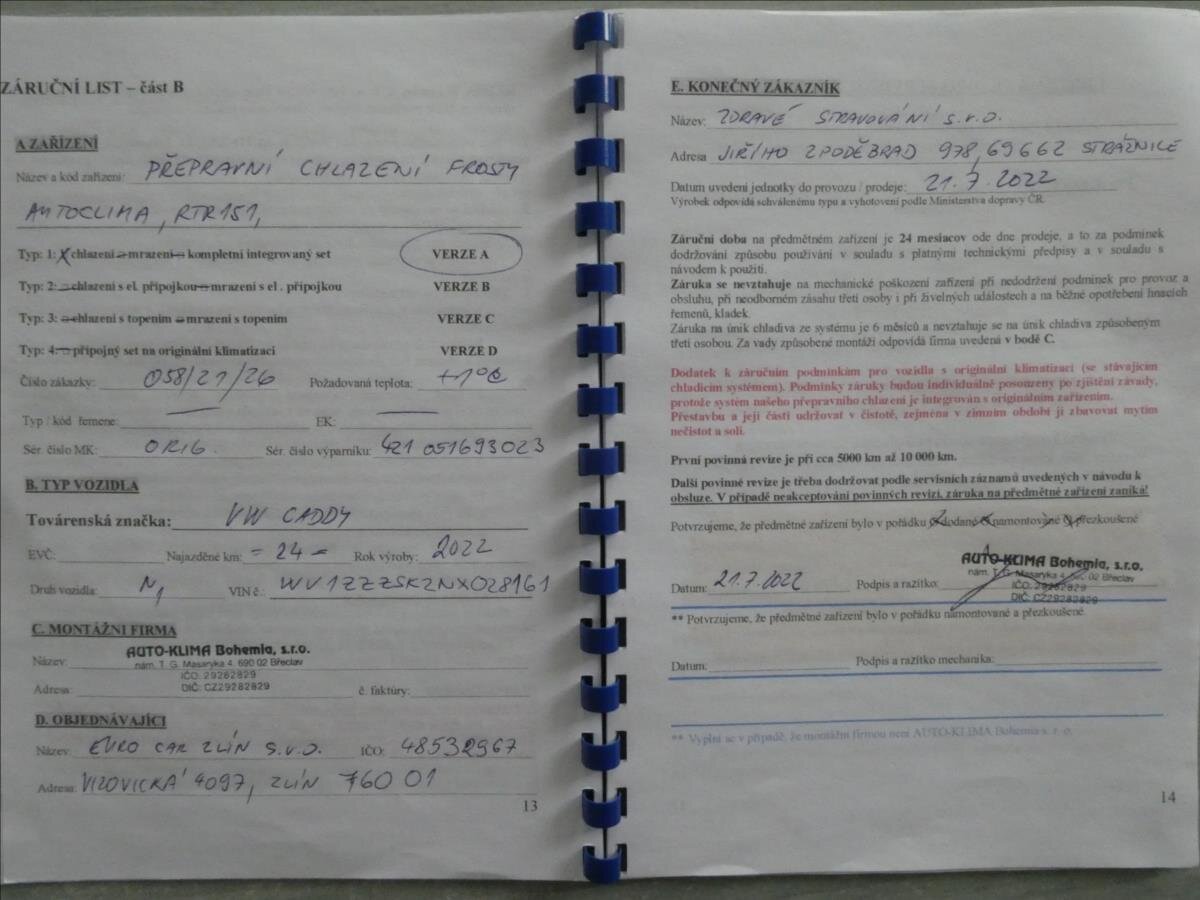 ZÁRUČNÍ LIST – část B
A ZAŘÍZENÍ
Název a kód zařízení: PŘEPRAVNÍ CHLAZENÍ FROSTY
AUTOCLIMA, RTR151,
Typ: 1: chlazení mrazení kompletní integrovaný set VERZE A
Typ: 2: chlazení s el. přípojkou mrazení s el . přípojkou VERZE B
Typ: 3: chlazení s topením mrazení s topením VERZE C
Typ: 4: přípojný set na originální klimatizaci VERZE D
Číslo zákazky: 058/21/26 Požadovaná teplota: +1°C
Typ / kód řemene: — EK: —
Sér. číslo MK: ORIG. Sér. číslo výparníku: 421 051693023
B. TYP VOZIDLA
Továrenská značka: VW CADDY
EVČ: Najazděné km: = 24 = Rok výroby: 2022
Druh vozidla: N1 VIN č.: WV1ZZZSK2NX028161
C. MONTÁŽNI FIRMA
AUTO-KLIMA Bohemia, s.r.o.
Název: nám. T. G. Masaryka 4, 690 02 Břeclav
IČO: 29282829
Adresa: DIČ: CZ29282829 č. faktúry:
D. OBJEDNÁVAJÍCI
Název: EURO CAR ZLÍN s.r.o. IČO: 48532967
Adresa: VIZOVICKÁ 4097, ZLÍN 760 01
13
E. KONEČNÝ ZÁKAZNÍK
Název: ZDRAVÉ STRAVOVÁNÍ s.r.o.
Adresa JIŘÍHO Z PODĚBRAD 978, 69662 STRÁŽNICE
Datum uvedení jednotky do provozu / prodeje: 21.7.2022
Výrobek odpovídá schválenému typu a vyhotovení podle Ministerstva dopravy ČR.
Záruční doba na předmětném zařízení je 24 mesiacov ode dne prodeje, a to za podmínek
dodržování způsobu používání v souladu s platnými technickými předpisy a v souladu s
návodem k použití.
Záruka se nevztahuje na mechanické poškození zařízení při nedodržení podmínek pro provoz a
obsluhu, při neodborném zásahu třetí osoby i při živelných událostech a na běžné opotřebení hnacích
řemenů, kladek.
Záruka na únik chladiva ze systému je 6 měsíců a nevztahuje se na únik chladiva způsobeným
třetí osobou. Za vady způsobené montáží odpovídá firma uvedená v bodě C.
Dodatek k záručním podmínkám pro vozidla s originální klimatizací (se stávajícím
chladicím systémem). Podmínky záruky budou individuálně posouzeny po zjištění závady,
protože systém našeho přepravního chlazení je integrován s originálním zařízením.
Přestavbu a její části udržovat v čistotě, zejména v zimním období ji zbavovat mytím
nečistot a soli.
První povinná revize je při cca 5000 km až 10 000 km.
Další povinné revize je třeba dodržovat podle servisních záznamů uvedených v návodu k
obsluze. V případě neakceptování povinných revizí, záruka na předmětné zařízení zaniká!
Potvrzujeme, že předmětné zařízení bylo v pořádku dodané namontováne přezkoušené
AUTO-KLIMA Bohemia, s.r.o.
nám. T. G. Masaryka 4, 690 02 Břeclav
Datum: 21.7.2022 Podpis a razítko: IČO: 29282829
DIČ: CZ29282829
** Potvrzujeme, že předmětné zařízení bylo v pořádku namontované a přezkoušené.
Datum: Podpis a razítko mechanika:
** Vyplní se v případě, že montážní firmou není AUTO-KLIMA Bohemia s. r. o.
14